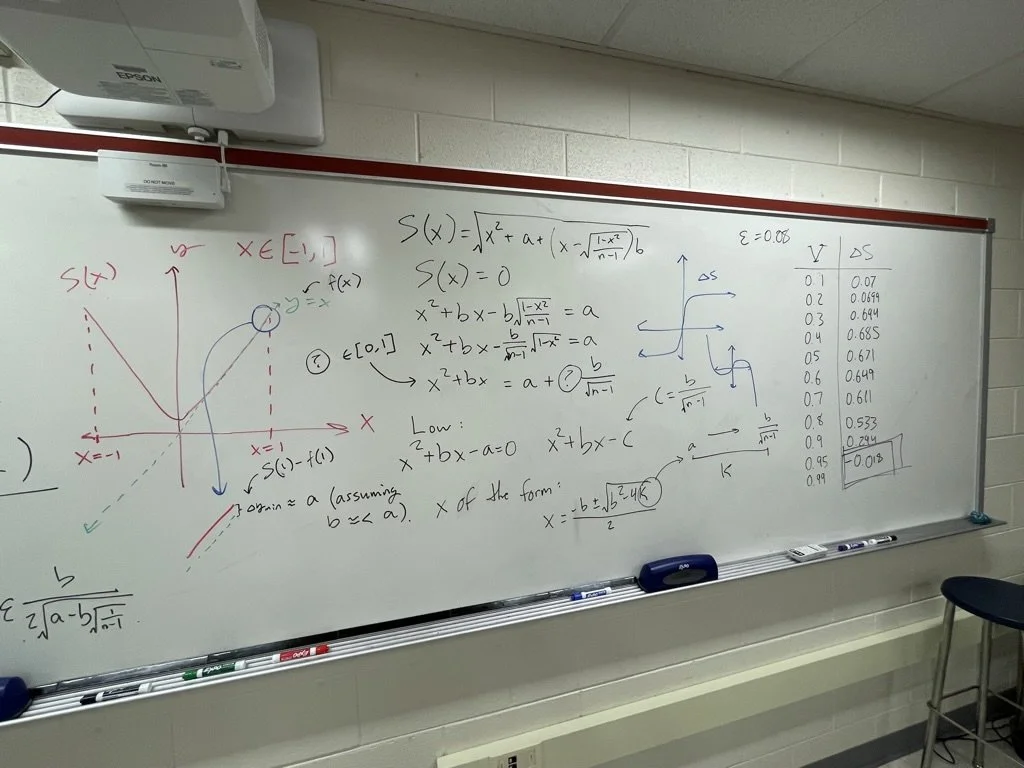 EPSON
DO NOT MOVE
x ∈ [-1,1]
S(x)
f(x)
y=x
X
x=-1
x=1
S(1)-f(1)
≈ a (assuming
b << a).
S(x) = √(x² + a + (x - √((1-x²)/(n-1)))b)
S(x) = 0
x² + bx - b√((1-x²)/(n-1)) = a
x² + bx - b/√(n-1) √(1-x²) = a
? ∈ [0,1]
x² + bx = a + ? b/√(n-1)
C = b/√(n-1)
Low:
x² + bx - a = 0
x² + bx - C
x of the form:
x = (-b ± √(b² - 4K))/2
a → b/√(n-1)
K
ΔS
ε = 0.08
V ΔS
0.1 0.07
0.2 0.0699
0.3 0.694
0.4 0.685
05 0.671
0.6 0.649
0.7 0.611
0.8 0.533
0.9 0.294
0.95 -0.018
0.99
)
ε b/(2√(a-b√(1/(n-1))))
EXPO